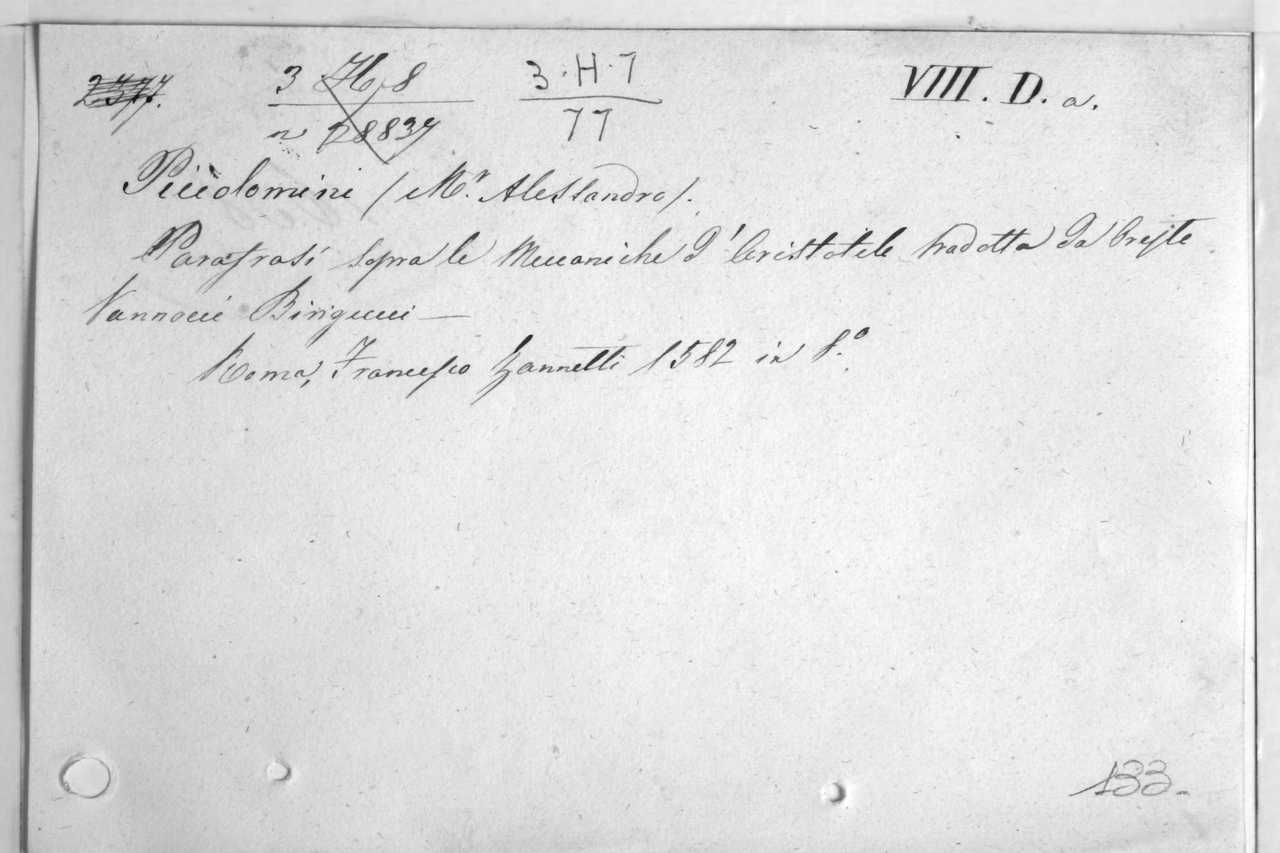 3 H, 8 3·H·7 VIII. D. a.
n 28837 77
Piccolomini (Mr. Alessandro).
Parafrasi sopra le Meccaniche d'Aristotele tradotta da Oreste
Vannocci Biringucci —
Roma, Francesco Zannetti 1582 in 8.º
133.